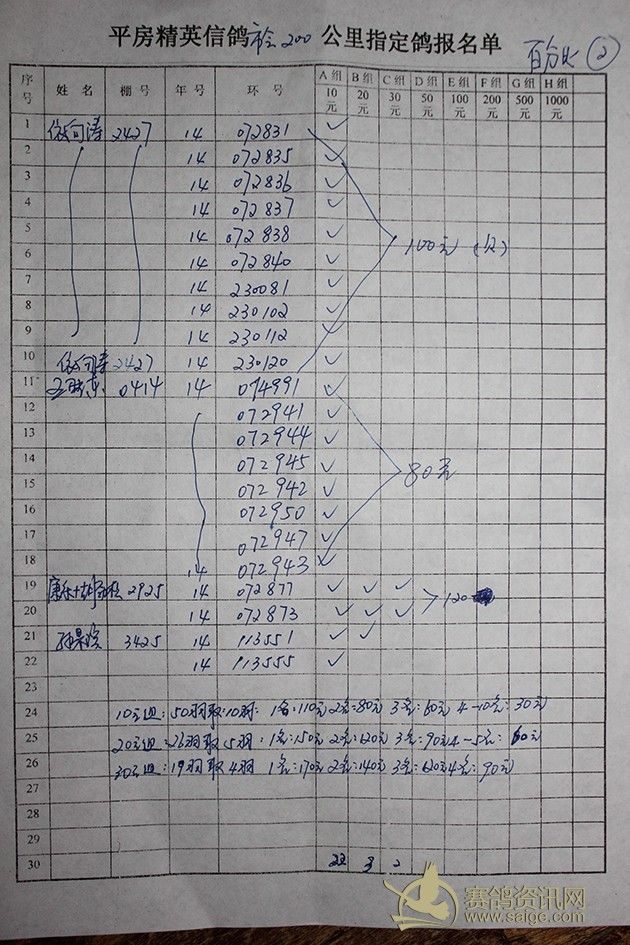 平房精英信鸽市会200公里指定鸽报名单
百分比 ②
序号 姓名 棚号 年号 环号 A组10元 B组20元 C组30元 D组50元 E组100元 F组200元 G组500元 H组1000元
1 2427 14 072831 ✓
2 14 072835 ✓
3 14 072836 ✓
4 14 072837 ✓
5 14 072838 ✓
6 14 072840 ✓
7 14 230081 ✓
8 14 230102 ✓
9 14 230112 ✓
10 2427 14 230120 ✓
100元
11 0414 14 074991 ✓
12 072941 ✓
13 072944 ✓
14 072945 ✓
15 072942 ✓
16 072950 ✓
17 072947 ✓
18 14 072943 ✓
80元
19 2925 14 072877 ✓ ✓ ✓
20 14 072873 ✓ ✓ ✓
120
21 3425 14 113551 ✓ ✓
22 14 113555 ✓
23
24 10元组:50羽取10羽: 1名:110元 2名:80元 3名:60元 4-10名:30元
25 20元组:26羽取5羽: 1名:150元 2名:120元 3名:90元 4-5名:60元
26 30元组:19羽取4羽 1名:170元 2名:140元 3名:120元 4名:90元
27
28
29
30 22 3 2
赛鸽资讯网
www.saige.com